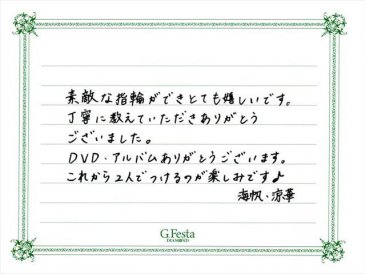 素敵な指輪ができとても嬉しいです。
丁寧に教えていただきありがとう
ございました。
DVD・アルバムありがとうございます。
これから2人でつけるのが楽しみです♪
海帆・涼華
G.Festa
DIAMOND